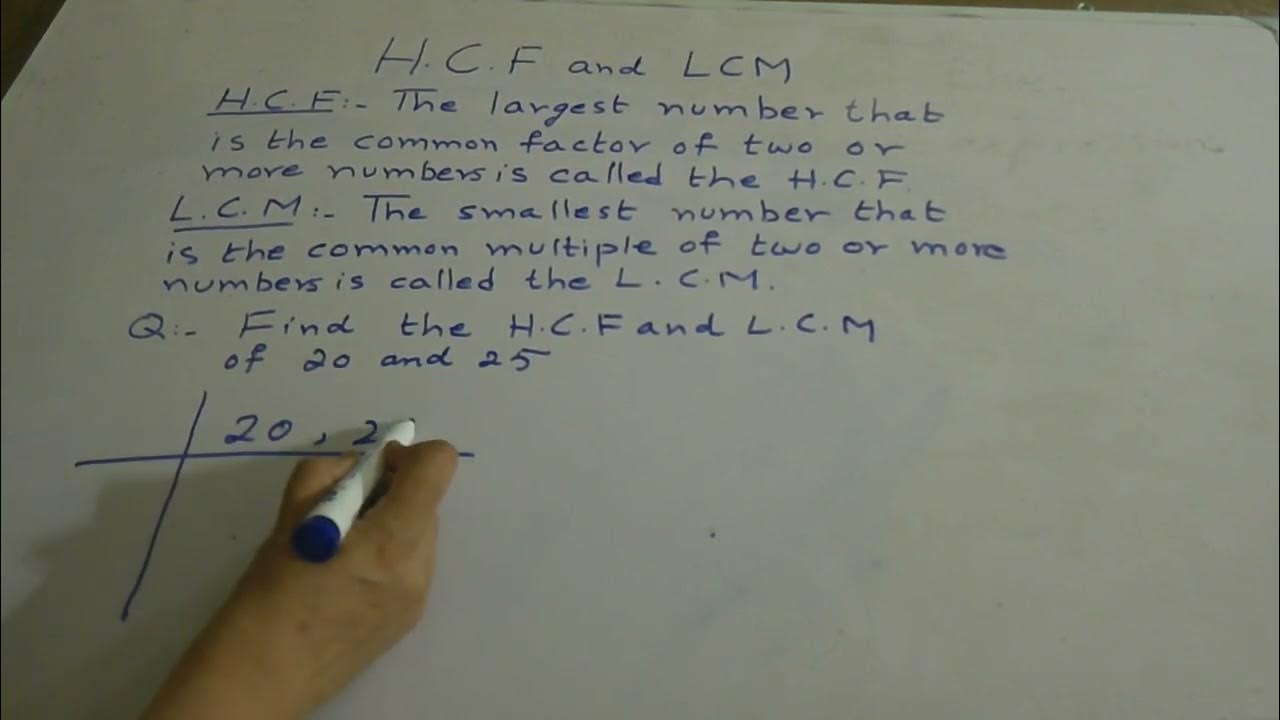 H.C.F and LCM
H.C.F:- The largest number that
is the common factor of two or
more numbers is called the H.C.F.
L.C.M:- The smallest number that
is the common multiple of two or more
numbers is called the L.C.M.
Q:- Find the H.C.F and L.C.M
of 20 and 25
20, 2